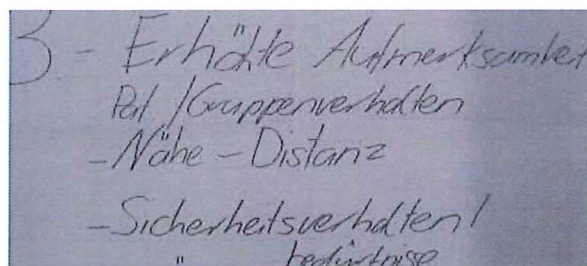 3 - Erhöhte Aufmerksamkeit
Pat / Gruppenverhalten
- Nähe - Distanz
- Sicherheitsverhalten /
" bedürfnise